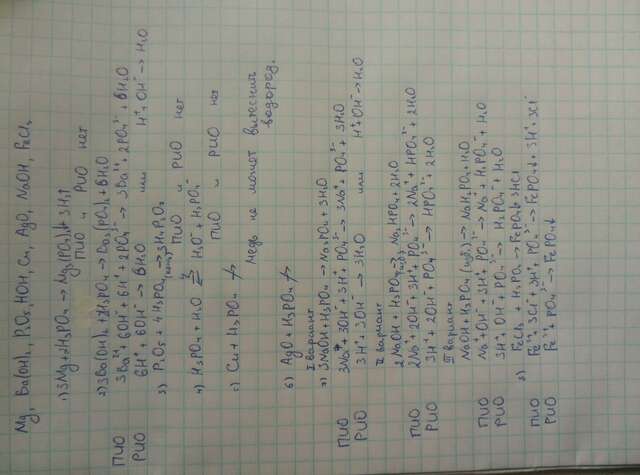 Mg, Ba(OH)₂, P₂O₅, HOH, Cu, AgO, NaOH, FeCl₃
1) 3Mg + 2H₃PO₄ → Mg₃(PO₄)₂ + 3H₂↑
ПИО и РИО нет
2) 3Ba(OH)₂ + 2H₃PO₄ → Ba₃(PO₄)₂ + 6H₂O
ПИО 3Ba²⁺ + 6OH⁻ + 6H⁺ + 2PO₄³⁻ → 3Ba²⁺ + 2PO₄³⁻ + 6H₂O
РИО 6H⁺ + 6OH⁻ → 6H₂O или H⁺ + OH⁻ → H₂O
3) P₂O₅ + 4H₃PO₄ → 3H₄P₂O₇
ПИО и РИО нет
4) H₃PO₄ + H₂O ⇄ H₃O⁺ + H₂PO₄⁻
ПИО и РИО нет
5) Cu + H₃PO₄ ↛
медь не может вытеснить водород.
6) AgO + H₃PO₄ ↛
I вариант
7) 3NaOH + H₃PO₄ → Na₃PO₄ + 3H₂O
ПИО 3Na⁺ + 3OH⁻ + 3H⁺ + PO₄³⁻ → 3Na⁺ + PO₄³⁻ + 3H₂O
РИО 3H⁺ + 3OH⁻ → 3H₂O или H⁺ + OH⁻ → H₂O
II вариант
2NaOH + H₃PO₄ → Na₂HPO₄ + 2H₂O
ПИО 2Na⁺ + 2OH⁻ + 3H⁺ + PO₄³⁻ → 2Na⁺ + HPO₄²⁻ + 2H₂O
РИО 3H⁺ + 2OH⁻ + PO₄³⁻ → HPO₄²⁻ + 2H₂O
III вариант
NaOH + H₃PO₄ (изб.) → NaH₂PO₄ + H₂O
ПИО Na⁺ + OH⁻ + 3H⁺ + PO₄³⁻ → Na⁺ + H₂PO₄⁻ + H₂O
РИО 3H⁺ + OH⁻ + PO₄³⁻ → H₂PO₄⁻ + H₂O
8) FeCl₃ + H₃PO₄ → FePO₄↓ + 3HCl
ПИО Fe³⁺ + 3Cl⁻ + 3H⁺ + PO₄³⁻ → FePO₄↓ + 3H⁺ + 3Cl⁻
РИО Fe³⁺ + PO₄³⁻ → FePO₄↓